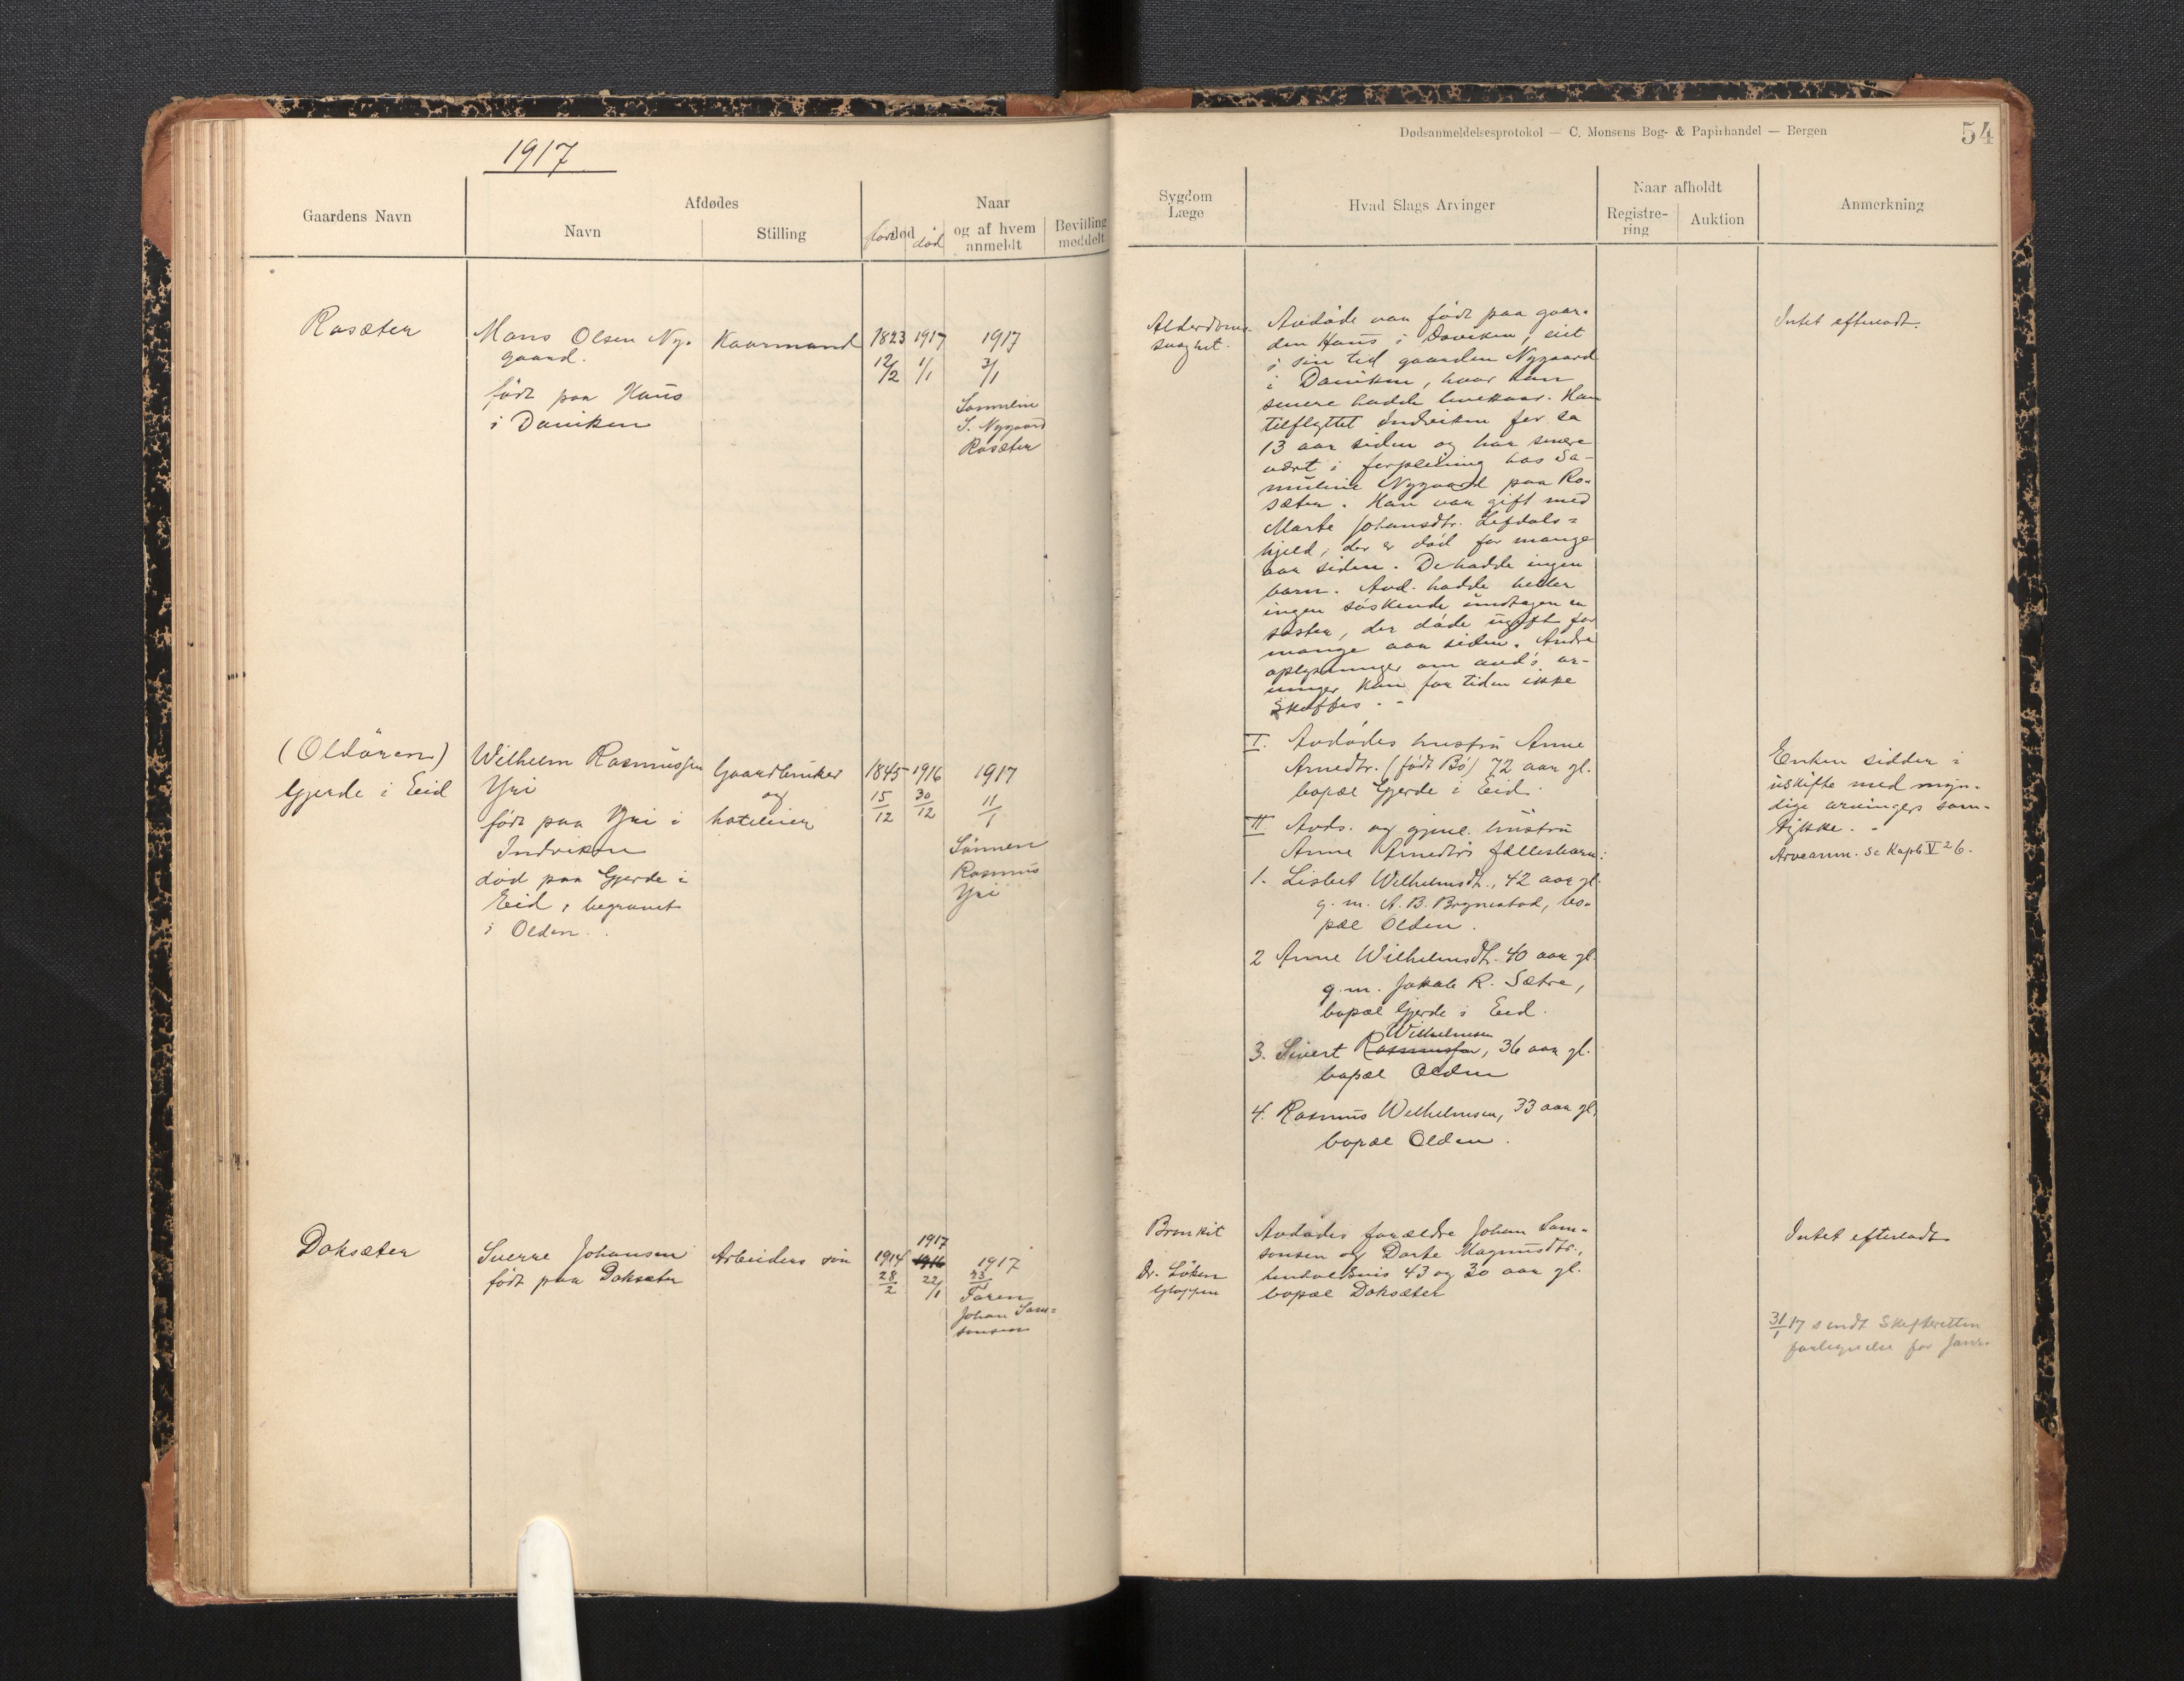 1917
Gaardens Navn
Afdødes
Navn
Stilling
Naar
død
født død
og af hvem anmeldt
Bevilling meddelt
Rosæter
Mons Olsen Ny-
gaard.
født paa Haus
i Daviken
Kaarmand
1823 1917 1917
12/2 1/1 3/1
Samuline
S. Nygaard
Rosæter
(Oldøren)
Gjerde i Eid
Wilhelm Rasmussen
Yri
født paa Yri i
Indviken
død paa Gjerde i
Eid, begravet
i Olden.
Gaardbruker
og
hoteleier
1845 1916 1917
15/12 30/12 11/1
Sønnen
Rasmus
Yri
Doksæter
Sverre Johansen
født paa Doksæter
Arbeiders søn
1917
1914 1916 1917
28/2 22/1 23/1
Faren
Johan Sam-
sonsen
Dødsanmeldelsesprotokol — C. Monsens Bog- & Papirhandel — Bergen
54
Sygdom
Læge
Hvad Slags Arvinger
Naar afholdt
Registre-
ring
Auktion
Anmerkning
Alderdoms-
svaghet.
Avdøde var født paa gaar-
den Haus i Daviken, eiet
i sin tid gaarden Nygaard
i Daviken, hvor han
senere hadde livekaar. Han
tilflyttet Indviken for ca
13 aar siden og har senere
været i forpleining hos Sa-
muline Nygaard paa Ro-
sæter. Han var gift med
Marte Johansdtr. Lefdals-
hjeld, der er død for mange
aar siden. De hadde ingen
barn. Avd. hadde heller
ingen søskende undtagen en
søster, der døde ugift for
mange aar siden. Andre
oplysninger om avd's ar-
vinger kan for tiden ikke
skaffes. -
Intet efterladt.
I. Avdødes hustru Anne
Arnedtr. (født Bø) 72 aar gl.
bopæl Gjerde i Eid.
II. Avds. og gjenl. hustru
Anne Arnedtr's fællesbarn:
1. Lisbet Wilhelmsdt., 42 aar gl.
g. m. A. B. Brynestad, bo-
pæl Olden.
2 Anne Wilhelmsdt. 40 aar gl.
g. m. Jakob R. Sætre,
bopæl Gjerde i Eid.
Wilhelmsen
3. Sivert Rasmussen, 36 aar gl.
bopæl Olden
4. Rasmus Wilhelmsen, 33 aar gl.
bopæl Olden.
Enken sidder i
uskifte med myn-
dige arvingers sam-
tykke. -
Arveanm. se Kopb. V 26.
Bronkit
Dr. Løken
Gloppen
Avdødes forældre Johan Sam-
sonsen og Dorte Magnusdtr.,
henholdsvis 43 og 30 aar gl.
bopæl Doksæter
Intet efterladt
31/1 17 sendt Skifteretten
fortegnelse for Janr.